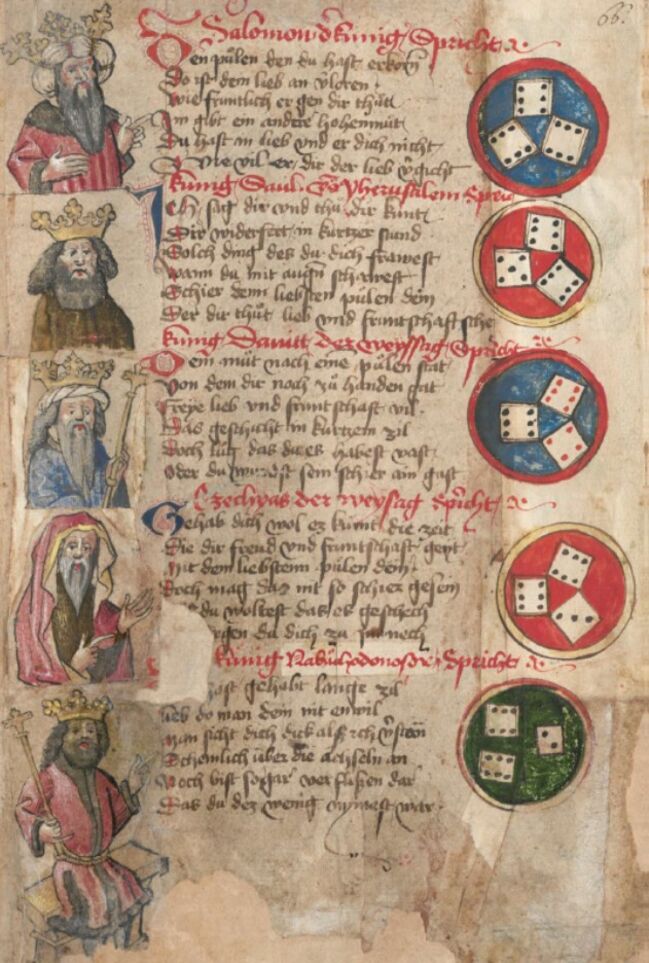 66.
Salomon d kunig Spricht
Den pulen den du hast erkorn
So ist dem lieb an verloren
Wie fruntlich er gen dir thut
Im gibt ein andre hohenmut
Du hast in lieb vnd er dich nicht
Wie vil er dir der lieb vgicht
kunig Saul von yherusalem Spricht
Ich sag dir vnd thu dir kunt
Dir widerfert in kurtzer stund
Solch ding des du dich frawest
Wann du mit augen schawest
Schier den liebsten pulen dein
Der dir thut lieb vnd fruntschaft schein
kunig Dauit der weyssag Spricht
Dein mut nach eine pulen stat
Von dem dir noch zu handen gat
Freye lieb vnd fruntschaft vil
Das geschicht in kurtzem zil
Doch lug das du es habest vast
Oder du wurdst sein schier ain gast
Ezechyas der weysag Spricht
Gehab dich wol ez kumt die zeit
Die dir freud vnd fruntschaft geyt
Mit dem liebsten pulen dein
Doch mag daz nit so schier gesein
du woltest das es geschech
dich zu
kunig Nabuchodonosor Spricht
hast gehabt lange zil
lieb do man dein nit enwil
man sicht dich dick
Schemlich über die achseln an
Noch bist sogar verflissen dar
Das du dez wenig nymest war